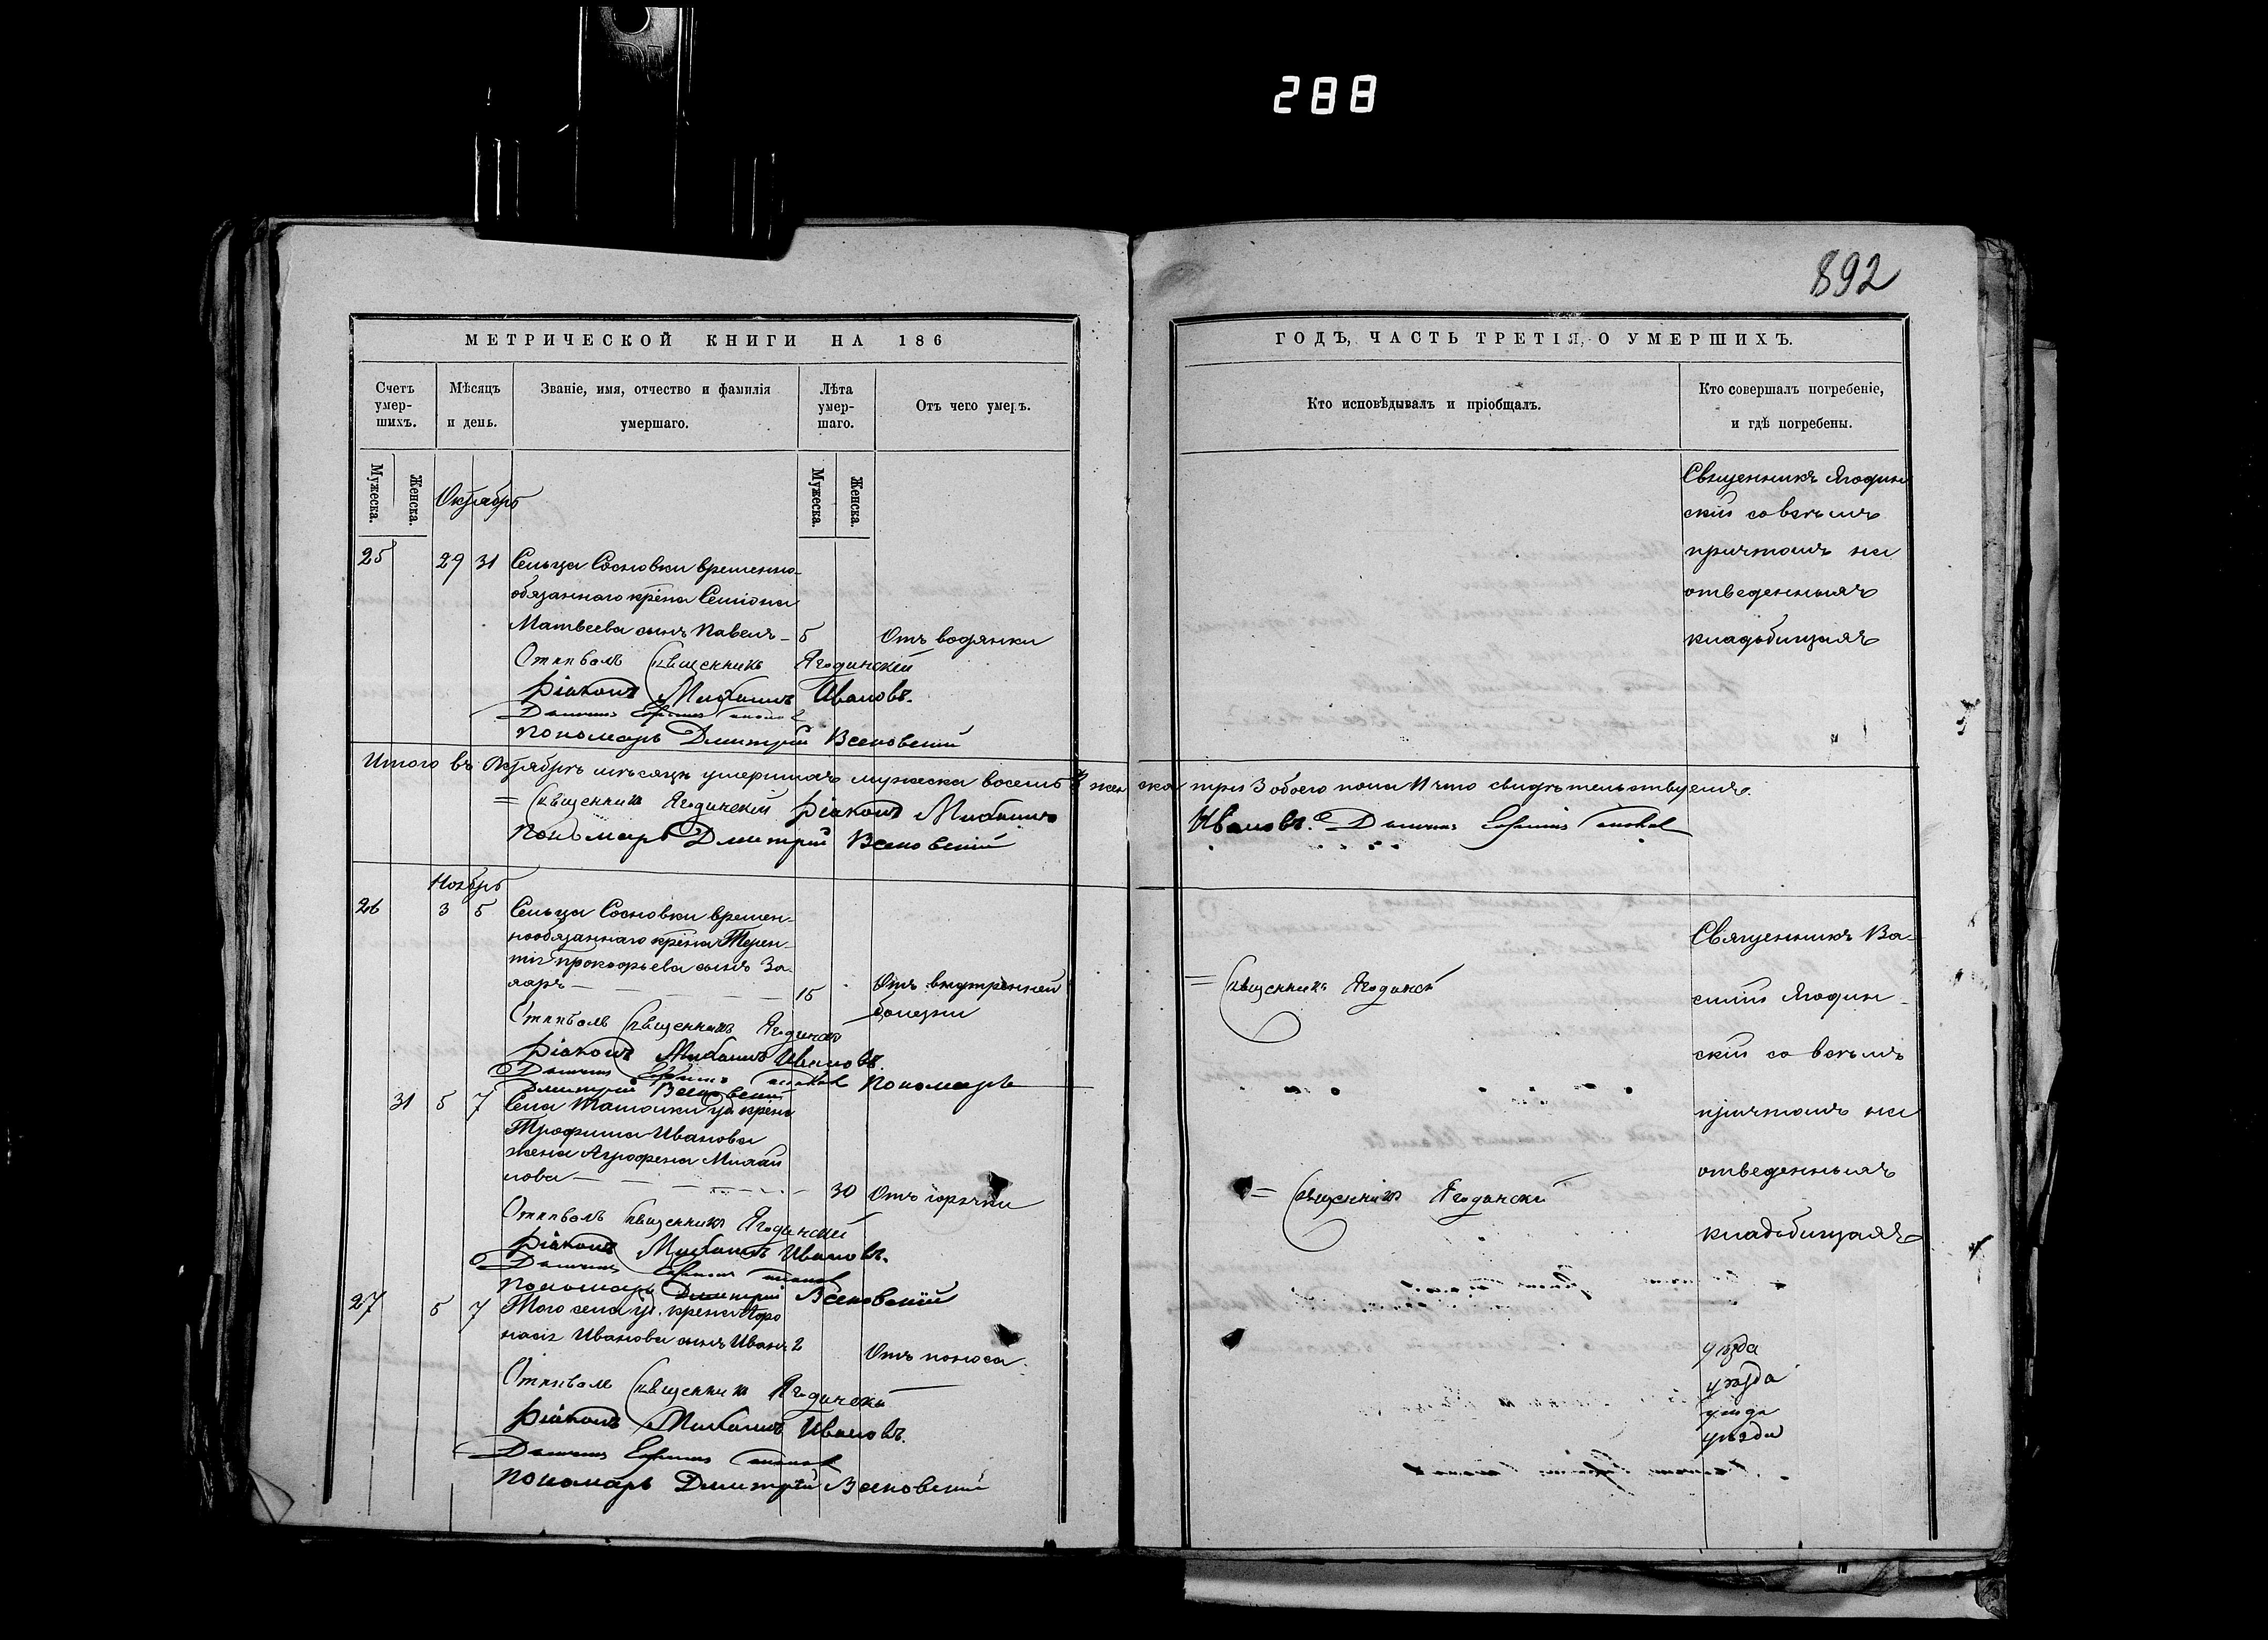 288
892
МЕТРИЧЕСКОЙ КНИГИ НА 186
ГОДЪ, ЧАСТЬ ТРЕТІЯ, О УМЕРШИХЪ.
Счетъ умер- шихъ.
Мѣсяцъ и день.
Званіе, имя, отчество и фамилія умершаго.
Лѣта умер- шаго.
Отъ чего умеръ.
Кто исповѣдывалъ и пріобщалъ.
Кто совершалъ погребеніе, и гдѣ погребены.
Мужеска. Женска.
Мужеска. Женска.
Октябрь
25 29 31 Сельца Сосновки временно-
обязаннаго крѣна Семіона
Матвеева сынъ Павелъ 5 Отъ водянки
Отпѣвалъ Священникъ Ягодинскій
Діаконъ Михаилъ Ивановъ.
Пономарь Дмитрій
Священникъ Ягодин
скій со всѣмъ
причтомъ на
отведенныхъ
кладбищахъ
Итого въ Октябрѣ мѣсяцѣ умершихъ мужеска восемь 8 женска три 3 обоего пола 11 что свидѣтельствуемъ.
= Священникъ Ягодинскій Діаконъ Михаилъ Ивановъ.
Пономарь Дмитрій
Ноябрь
26 3 5 Сельца Сосновки времен-
нообязаннаго крѣна Терен-
тія Прокофьева сынъ За-
харъ 15 Отъ внутренней
болезни
Отпѣвалъ Священникъ Ягодинскій
Діаконъ Михаилъ Ивановъ.
Пономарь
Дмитрій
= Священникъ Ягодинскій
31 5 7 Села уд. крѣна
Трофима Иванова
жена Агрофена Михай
лова 30 Отъ горячки
Отпѣвалъ Священникъ Ягодинскій
Діаконъ Михаилъ Ивановъ.
Пономарь Дмитрій
= Священникъ Ягодинскій
27 5 7 Того села уд. крѣна Афо
насія Иванова сынъ Иванъ 2 Отъ поноса.
Отпѣвалъ Священникъ Ягодинскій
Діаконъ Михаилъ Ивановъ.
Пономарь Дмитрій
Священникъ Ва-
силій Ягодин-
скій со всѣмъ
причтомъ на
отведенныхъ
кладбищахъ